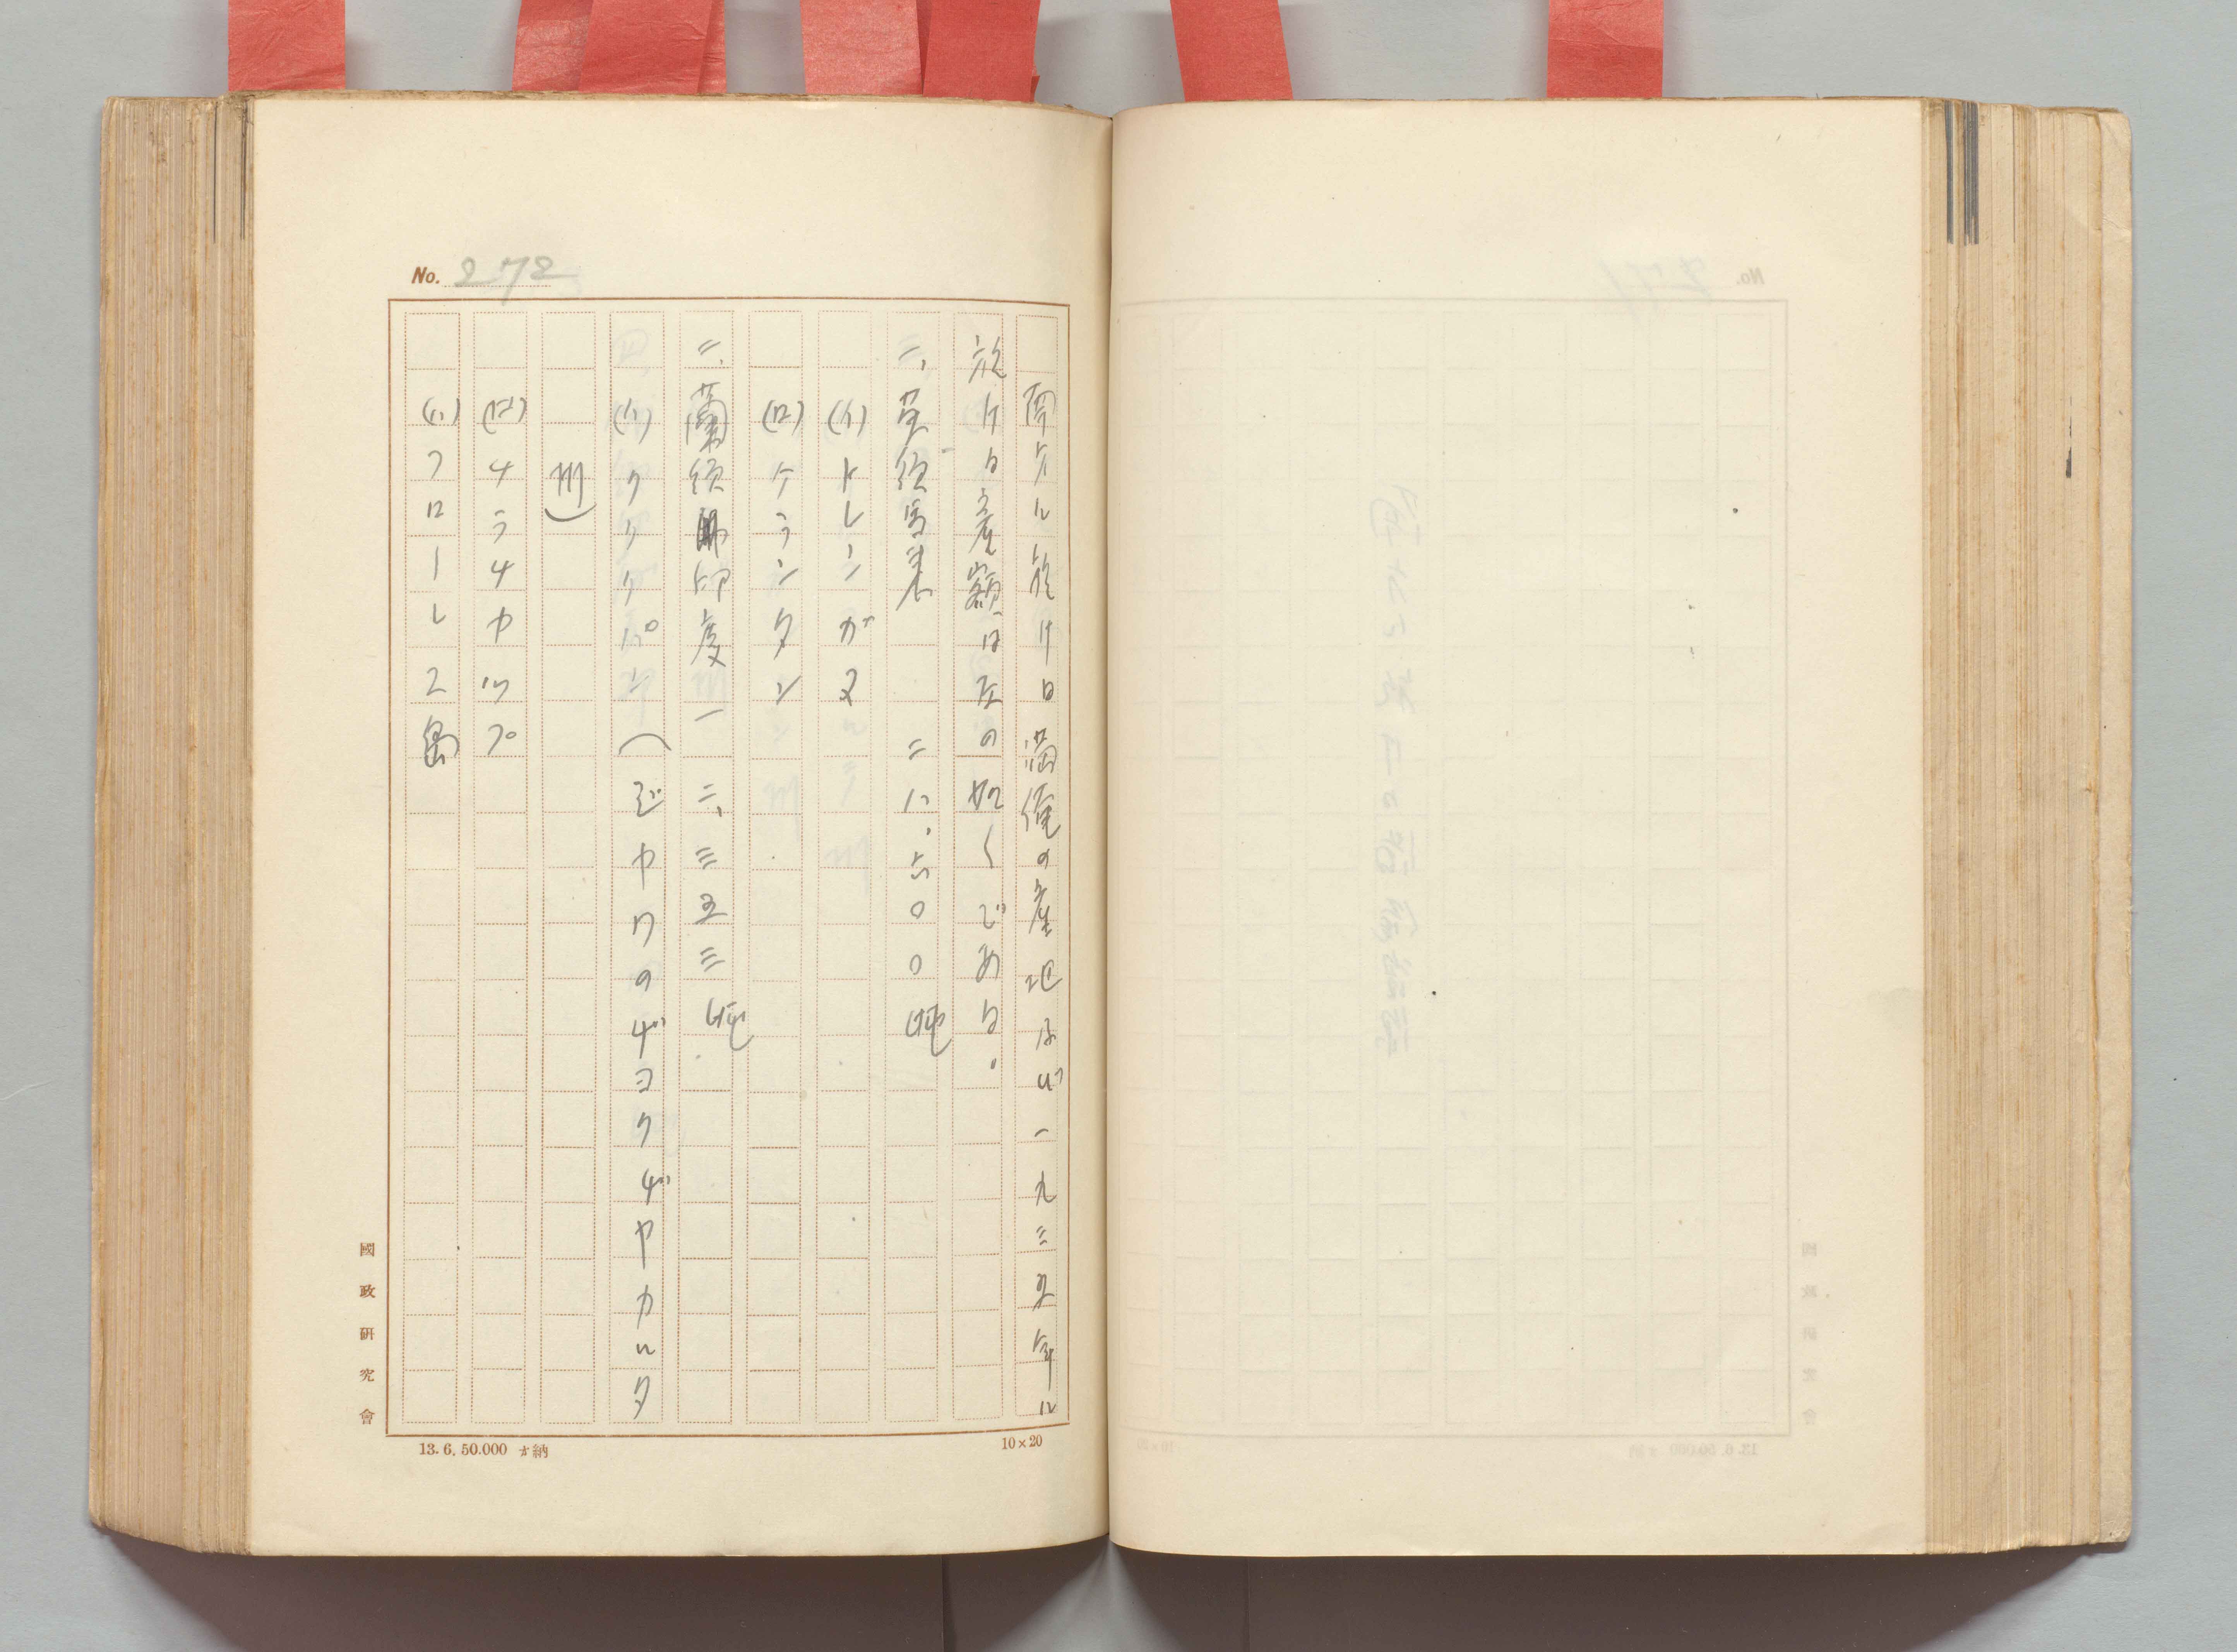 No. 272
南方ニ於ける満俺の産地及び一九三五年に
於ける産額は左の如くである。
一、英領馬来　二八、六〇〇噸
(イ)トレンガヌ
(ロ)ケランタン
二、蘭領印度　一二、三五三噸
(イ)クリクパン（ジヤワのヂヨクヂヤカルタ
州）
(ロ)チラチヤツプ
(ハ)フローレス島
國政研究會
13. 6. 50.000 納
10×20